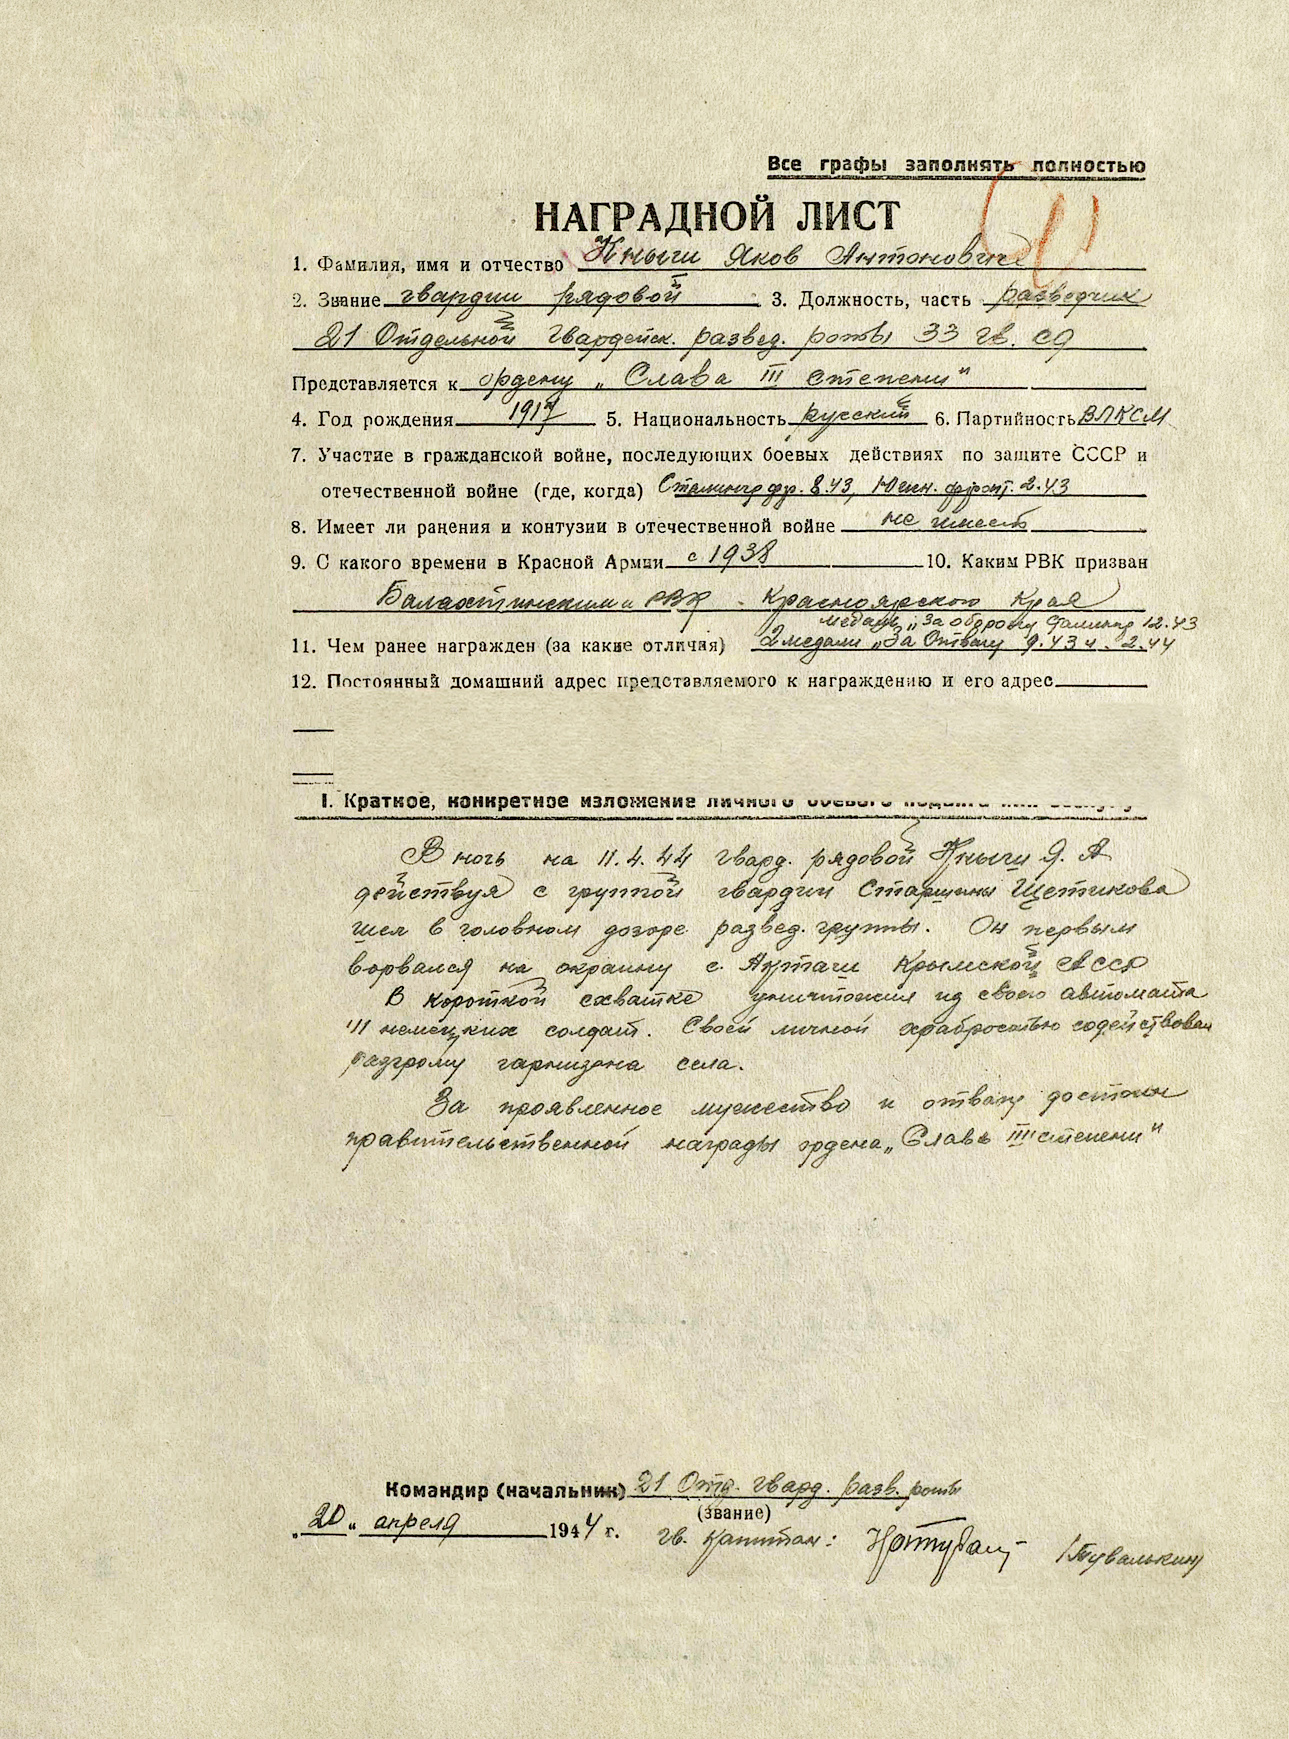 Все графы заполнять полностью
НАГРАДНОЙ ЛИСТ
1. Фамилия, имя и отчество Кныш Яков Антонович
2. Звание гвардии рядовой 3. Должность, часть разведчик
21 Отдельной Гвардейск. развед. роты 33 гв. сд
Представляется к ордену „Слава III степени"
4. Год рождения 1917 5. Национальность русский 6. Партийность ВЛКСМ
7. Участие в гражданской войне, последующих боевых действиях по защите СССР и
отечественной войне (где, когда) Сталингр фр. 8.43, Южн. фронт. 2.43
8. Имеет ли ранения и контузии в отечественной войне не имеет
9. С какого времени в Красной Армии с 1938 10. Каким РВК призван
Балахтинским РВК Красноярского Края
медаль „За оборону Сталингр 12.43
11. Чем ранее награжден (за какие отличия) 2 медали „За Отвагу 9.43 и 2.44
12. Постоянный домашний адрес представляемого к награждению и его адрес
I. Краткое, конкретное изложение личного боевого подвига или заслуг
В ночь на 11.4.44 гвард. рядовой Кныш Я. А
действуя с группой гвардии Старшины Щетикова
шел в головном дозоре развед. группы. Он первым
ворвался на окраину с. Актачи Крымской АССР
В короткой схватке уничтожил из своего автомата
III немецких солдат. Своей личной храбростью содействовал
разгрому гарнизона села.
За проявленное мужество и отвагу достоин
правительственной награды ордена „Слава III степени"
Командир (начальник) 21 Отд. гвард. разв. роты
(звание)
„20" апреля 1944 г. гв. Капитан: /Тувалькин/